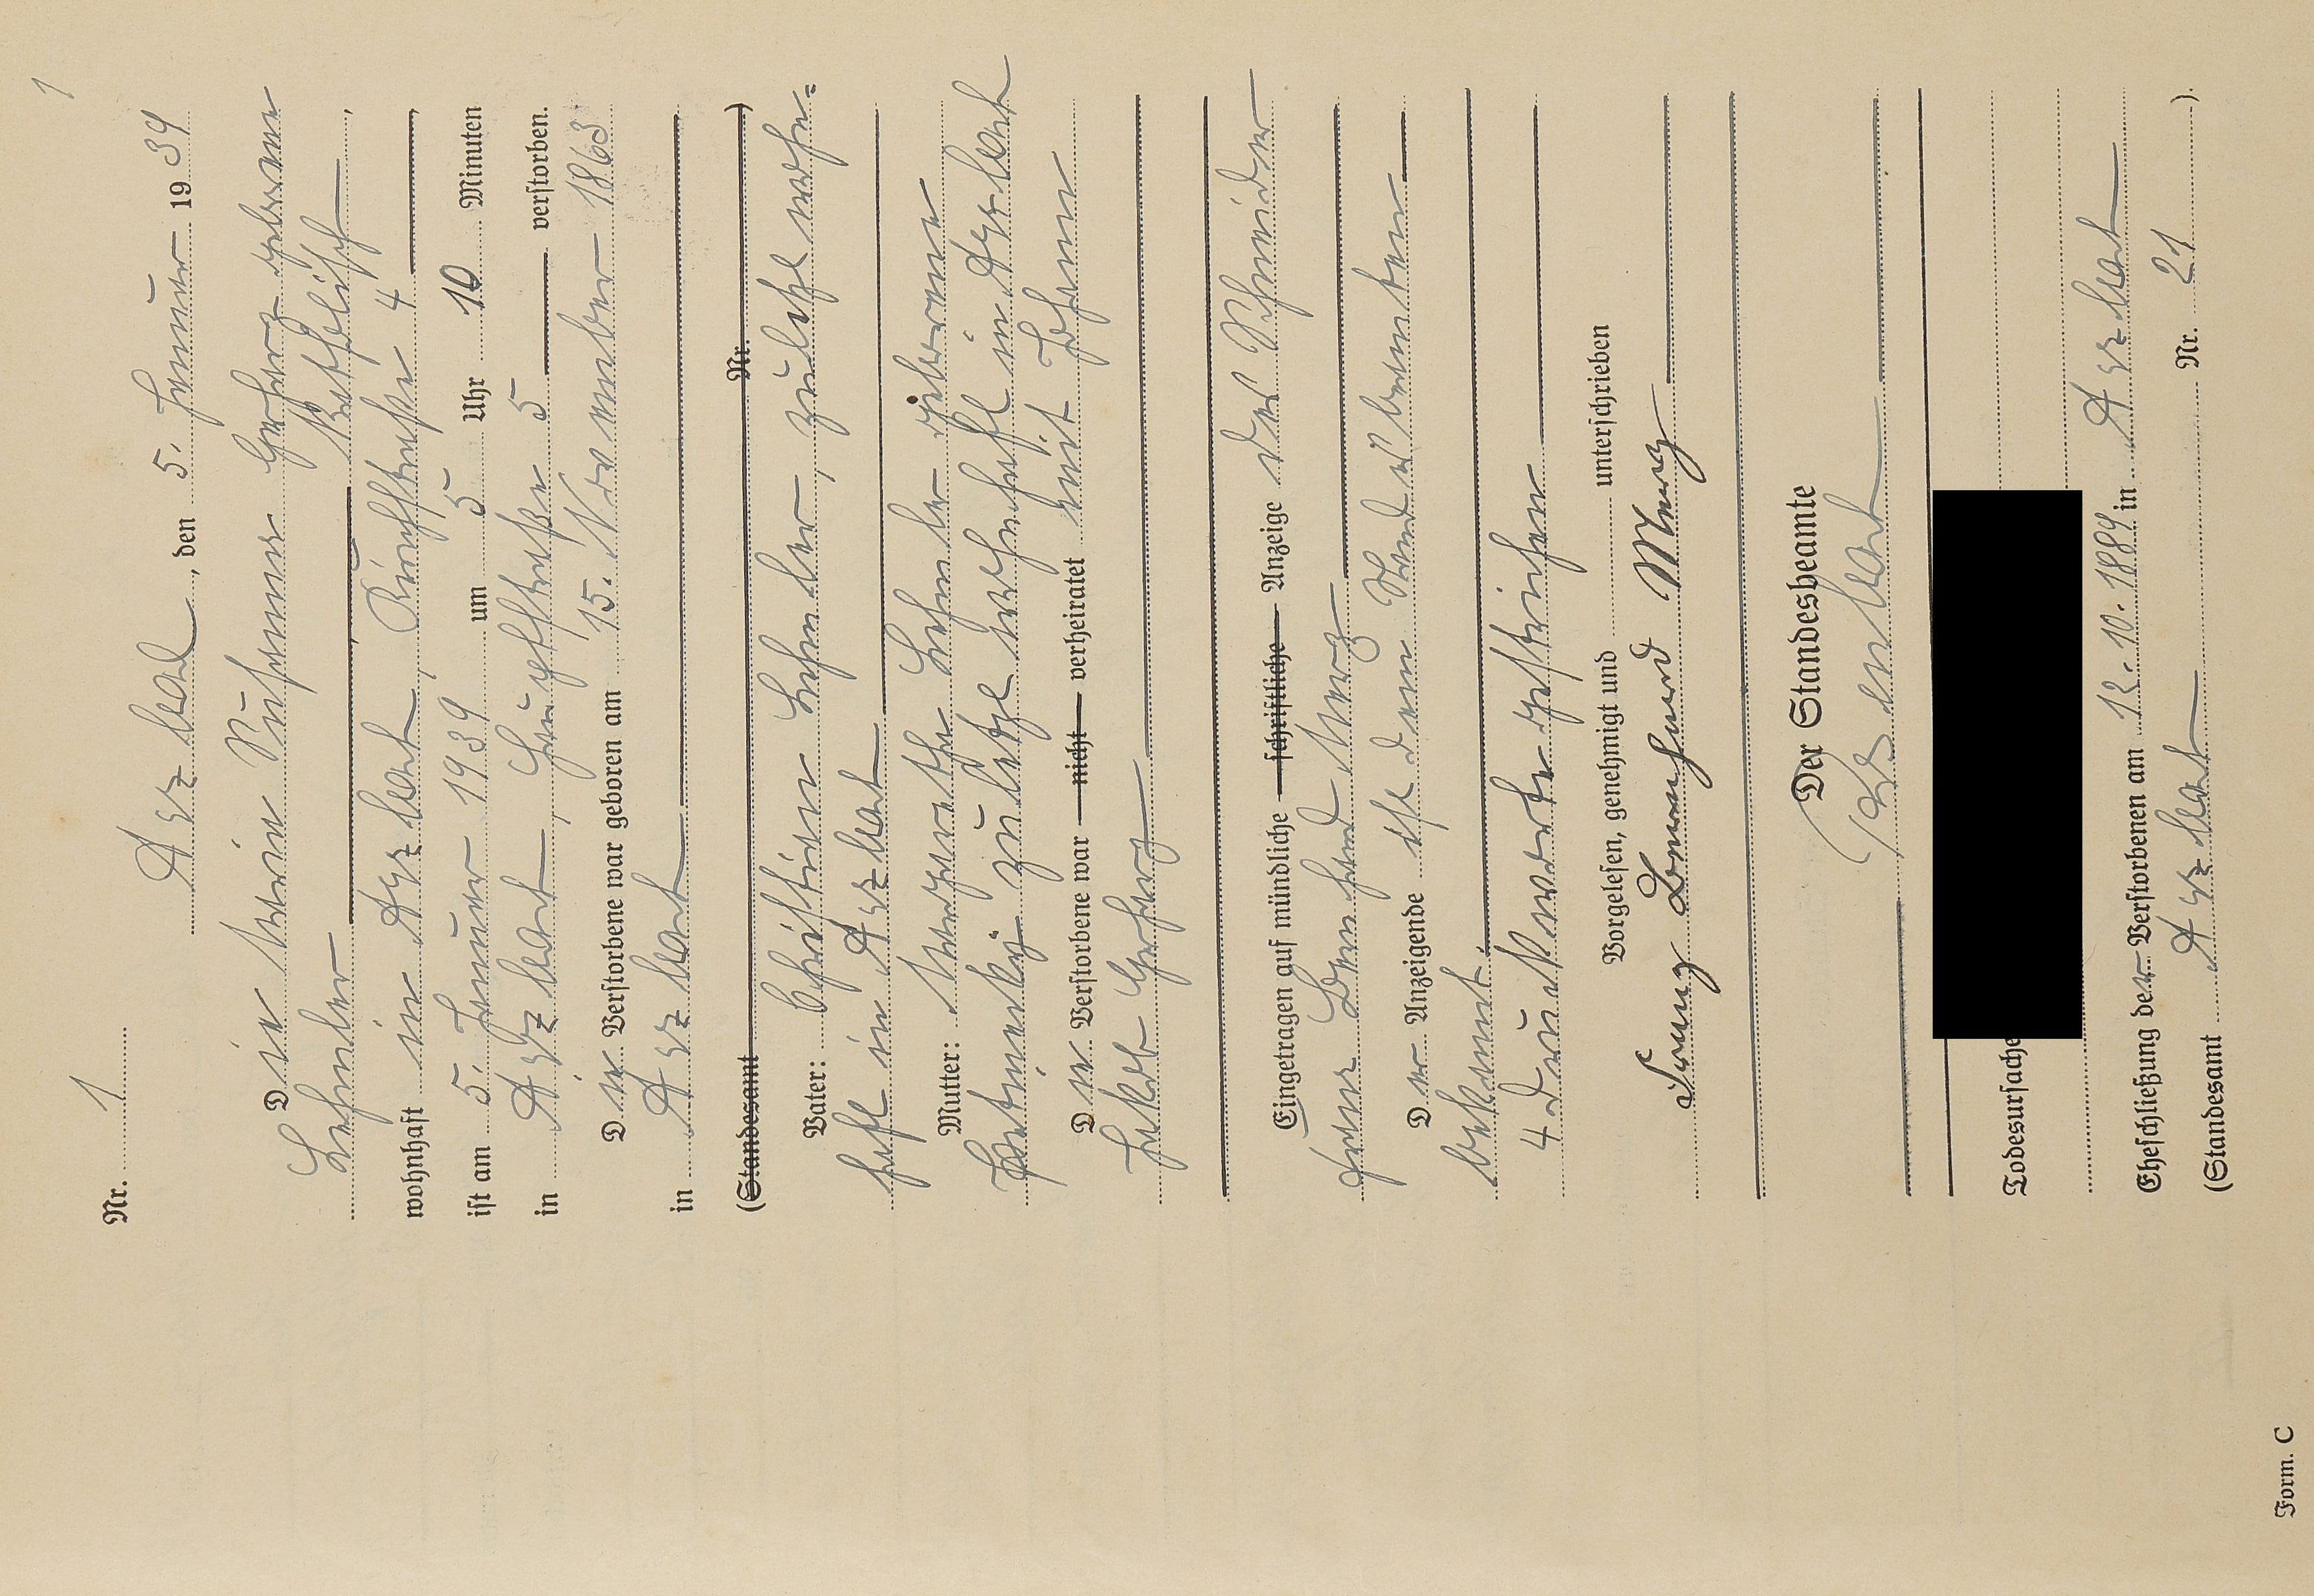 1
Nr. 1
Arzbach, den 5. Januar 1939
Die Maria Susanna Gerharz geborene
Lehmler katholisch
wohnhaft in Arzbach, Kirchstraße 4
ist am 5. Januar 1939 um 5 Uhr 10 Minuten
in Arzbach, Hauptstraße 5 verstorben.
Die Verstorbene war geboren am 15. November 1863
in Arzbach
(Standesamt Nr. )
Vater: Christian Lehmler, zuletzt wohn=
haft in Arzbach
Mutter: Margaretha Lehmler geborene
zuletzt wohnhaft in Arzbach
Die Verstorbene war nicht verheiratet mit Johann
Jakob Gerharz
Eingetragen auf mündliche schriftliche Anzeige des Schneider
Franz Bernhard Merz
Der Anzeigende ist dem Standesbeamten
bekannt.
4 Druckworte gestrichen
Vorgelesen, genehmigt und unterschrieben
Franz Bernhard Merz
Der Standesbeamte
Todesursache
Eheschließung der Verstorbenen am 12. 10. 1889 in Arzbach
(Standesamt Arzbach Nr. 21 ).
Form. C